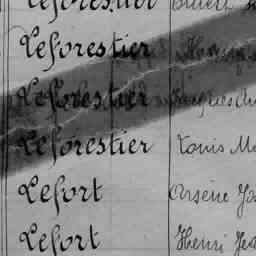 Leforestier
Leforestier
Leforestier
Leforestier Louis
Lefort Arsène
Lefort Henri